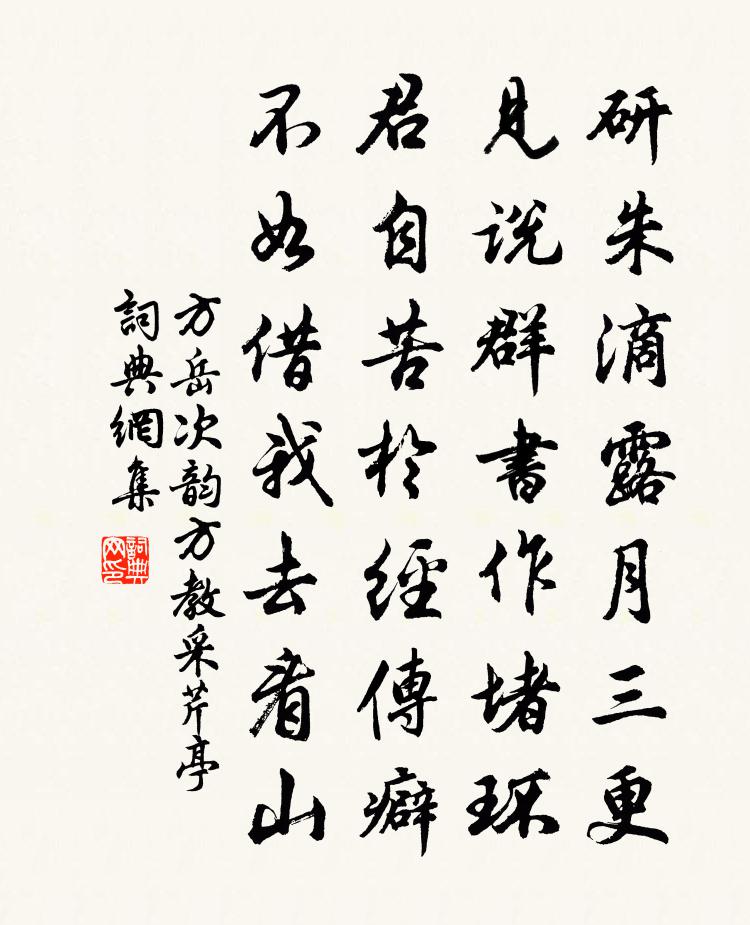 研朱滴露月三更
見说群書作堵环
君自苦於經傳癖
不如借我去看山
方岳次韵方教采芹亭
詞典網集
詞典網印